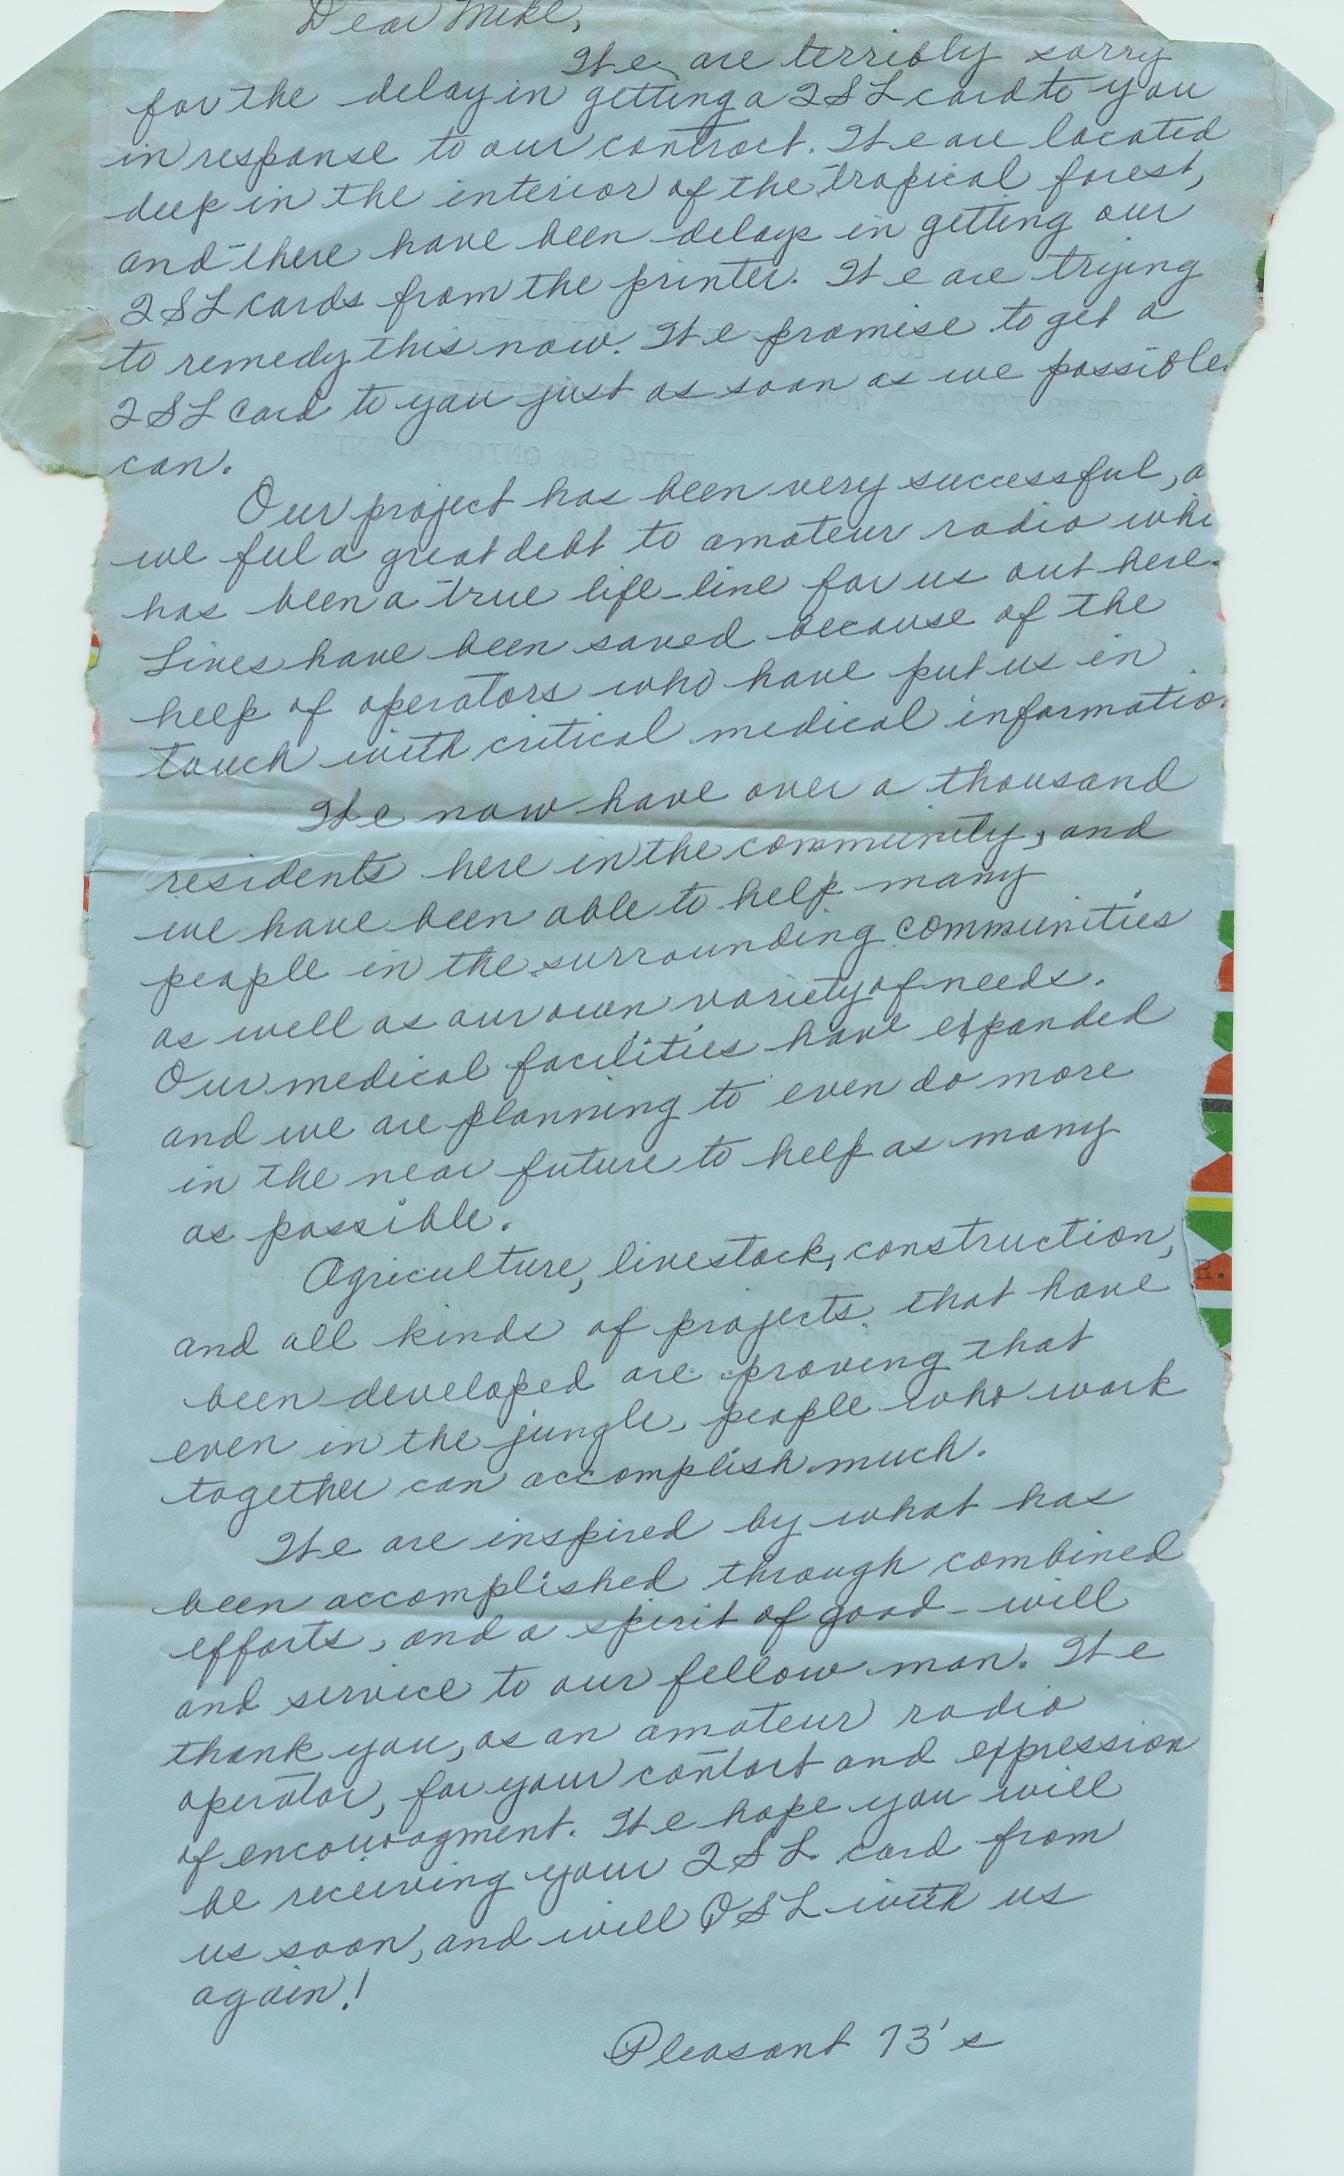 Dear Mike,
We are terribly sorry
for the delay in getting a QSL card to you
in response to our contract. We are located
deep in the interior of the tropical forest,
and there have been delays in getting our
QSL cards from the printer. We are trying
to remedy this now. We promise to get a
QSL card to you just as soon as we possible
can.
Our project has been very successful, a
we feel a great debt to amateur radio whi
has been a true life-line for us out here.
Lives have been saved because of the
help of operators who have put us in
touch with critical medical information
We now have over a thousand
residents here in the community, and
we have been able to help many
people in the surrounding communities
as well as our own variety of needs.
Our medical facilities have expanded
and we are planning to even do more
in the near future to help as many
as possible.
Agriculture, livestock, construction,
R.
and all kinds of projects that have
been developed are proving that
even in the jungle, people who work
together can accomplish much.
We are inspired by what has
been accomplished through combined
efforts, and a spirit of good-will
and service to our fellow man. We
thank you, as an amateur radio
operator, for your contact and expression
of encouragment. We hope you will
be receiving your QSL card from
us soon, and will QSL with us
again!
Pleasant 73's